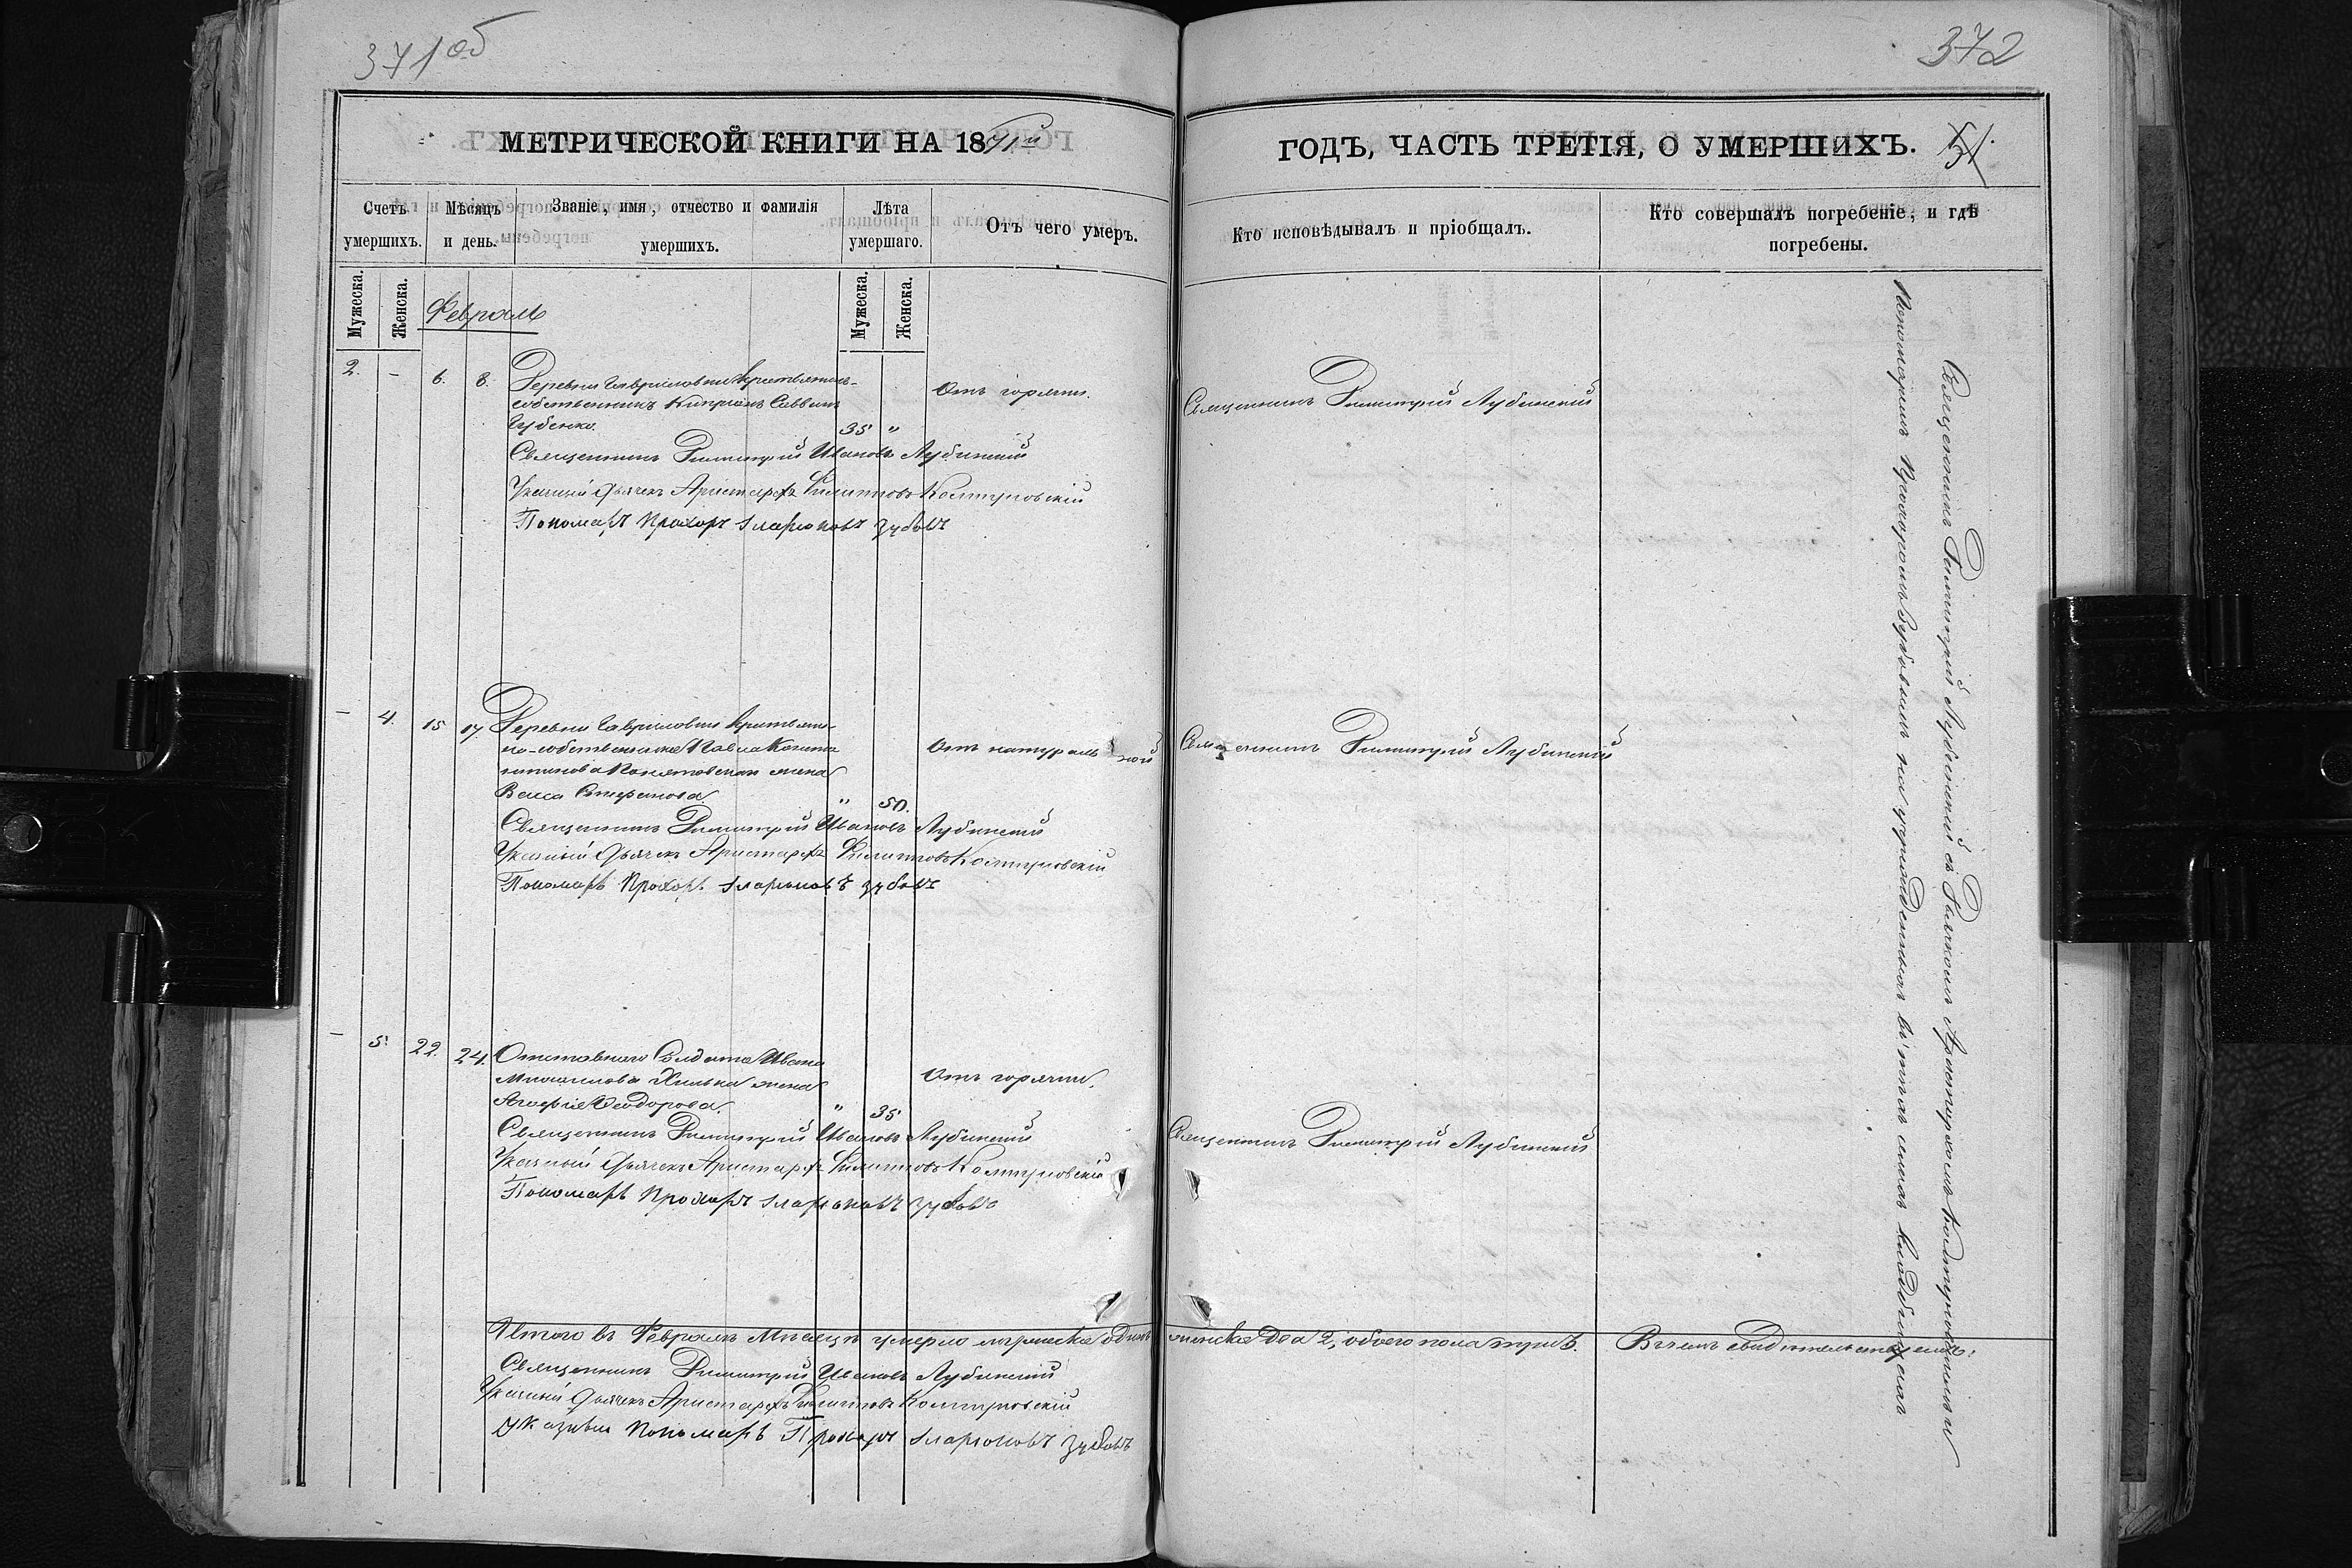 371об
МЕТРИЧЕСКОЙ КНИГИ НА 1871й
Счетъ умершихъ.
Мѣсяцъ и день.
Званіе, имя, отчество и фамилія умершихъ.
Лѣта умершаго.
Отъ чего умеръ.
Мужеска.
Женска.
Мужеска.
Женска.
Февраль
2. - 6. 8.
Деревни Гавриловки Крестьянинъ-
собственникъ Кипріанъ Саввинъ
Губенко. 35 "
Отъ горячки.
Священникъ Димитрій Ивановъ Лубинскій
Указный Дьячекъ Аристархъ Филиповъ Костуровскій
Пономарь Прохоръ Иларіоновъ Зубовъ
- 4. 15 17
Деревни Гавриловки Крестьяни-
на-собственника Павла Конста
нтинова жена
Васса Стефанова. " 50.
Отъ натуральной
Священникъ Димитрій Ивановъ Лубинскій
Указный Дьячекъ Аристархъ Филиповъ Костуровскій
Пономарь Прохоръ Иларіоновъ Зубовъ
- 5. 22. 24.
Отставного Солдата Ивана
жена
Феодорова. " 35
Отъ горячки.
Священникъ Димитрій Ивановъ Лубинскій
Указный Дьячекъ Аристархъ Филиповъ Костуровскій
Пономарь Прохоръ Иларіоновъ Зубовъ
Итого въ Февралѣ Мѣсяцѣ умерло мужеска одинъ
Священникъ Димитрій Ивановъ Лубинскій
Указный Дьячекъ Аристархъ Филиповъ Костуровскій
Указный Пономарь Прохоръ Иларіоновъ Зубовъ
372
ГОДЪ, ЧАСТЬ ТРЕТІЯ, О УМЕРШИХЪ.
Кто исповѣдывалъ и пріобщалъ.
Кто совершалъ погребеніе, и гдѣ погребены.
Священникъ Димитрій Лубинскій
Священникъ Димитрій Лубинскій
Священникъ Димитрій Лубинскій
женска два 2, обоего пола три 3. Въ чемъ свидѣтельствуемъ:
Священникъ Димитрій Лубинскій съ Дьячкомъ Аристархомъ Костуровскимъ и
Пономаремъ Прохоромъ Зубовымъ на въ томъ селѣ кладбищахъ